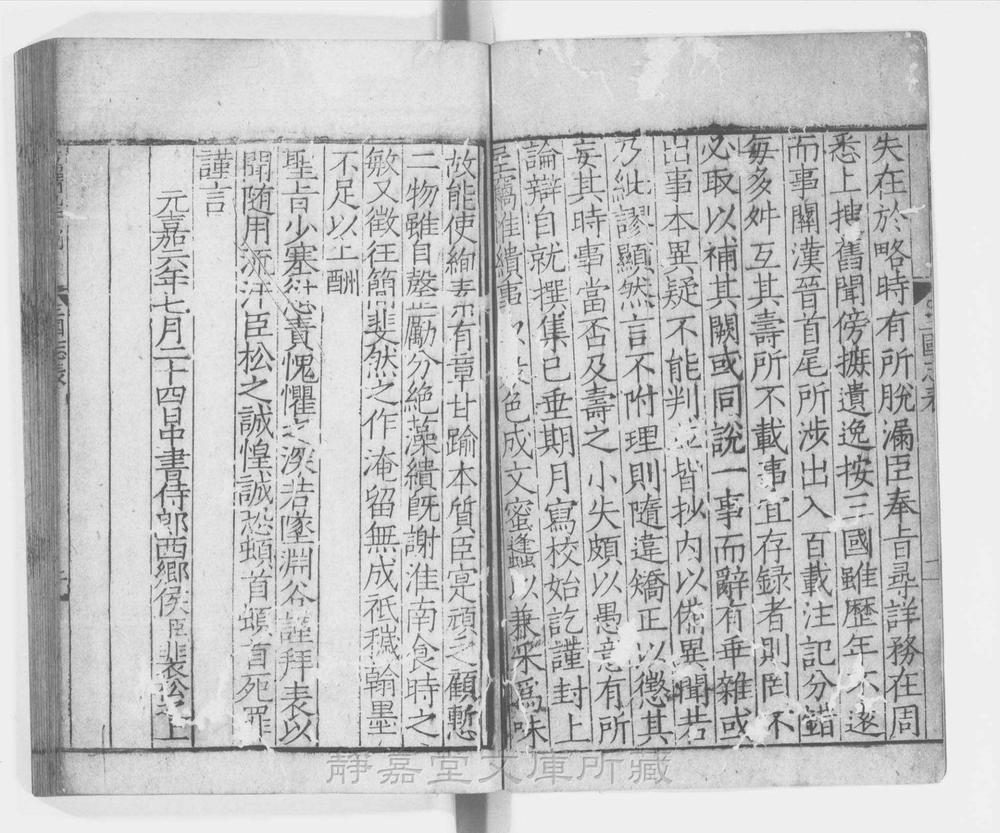 失在於略時有所脫漏臣奉旨尋詳務在周
悉上搜舊聞傍摭遺逸按三國雖歷年不遠
而事關漢晉首尾所涉出入百載注記分錯
每多舛互其壽所不載事宜存錄者則罔不
必取以補其闕或同說一事而辭有乖雜或
出事本異疑不能判並皆抄內以備異聞若
乃紕謬顯然言不附理則隨違矯正以懲其
妄其時事當否及壽之小失頗以愚意有所
論辯自就撰集已垂期月寫校始訖謹封上
呈竊惟繢事以眾色成文蜜蠭以兼采爲味
故能使絢素有章甘踰本質臣寔頑乏顧慙
二物雖自罄勵分絕藻繢旣謝淮南食時之
敏又微狂簡斐然之作淹留無成祇穢翰墨
不足以上酬
聖旨少塞愆責愧懼之深若墜淵谷謹拜表以
聞隨用流汗臣松之誠惶誠恐頓首頓首死罪
謹言
元嘉六年七月二十四日中書侍郎西鄉侯臣裴松之上
靜嘉堂文庫所藏